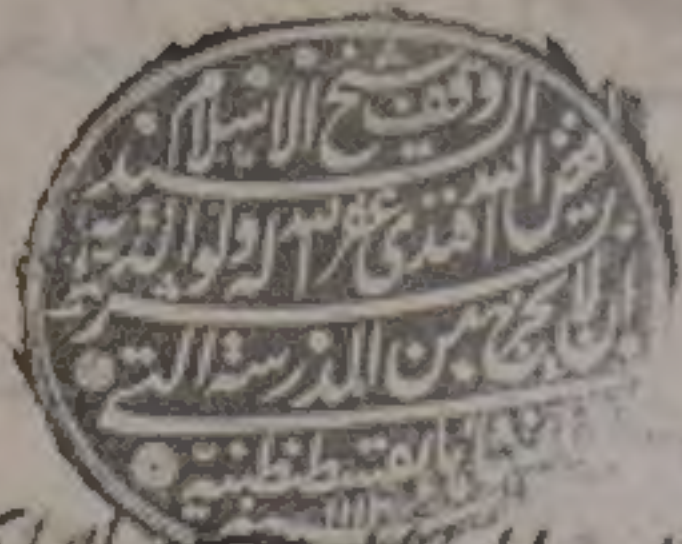 وقف شيخ الاسلام السيد
فيض الله افندى غفر الله له ولوالديه
بشرط ان لا يخرج من المدرسة التى
انشاها بقسطنطنية
سنة